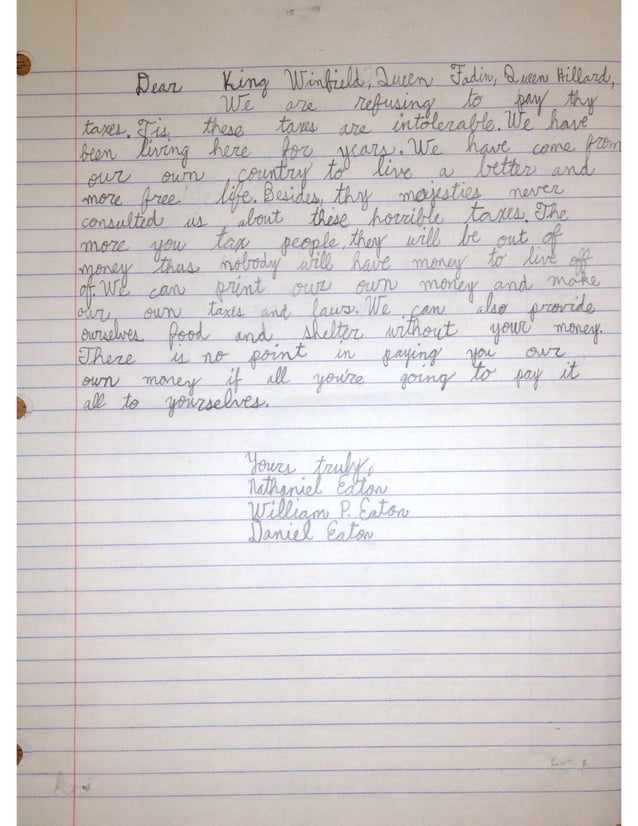 Dear King Winfield, Queen Fadin, Queen Hillard,
We are refusing to pay thy
taxes. Tis these taxes are intolerable. We have
been living here for years. We have come from
our own country to live a better and
more free life. Besides, thy majesties never
consulted us about these horrible taxes. The
more you tax people, they will be out of
money thus nobody will have money to live off
of. We can print our own money and make
our own taxes and laws. We can also provide
ourselves food and shelter without your money.
There is no point in paying you our
own money if all you're going to pay it
all to yourselves.
Yours truly,
Nathaniel Eaton
William P. Eaton
Daniel Eaton